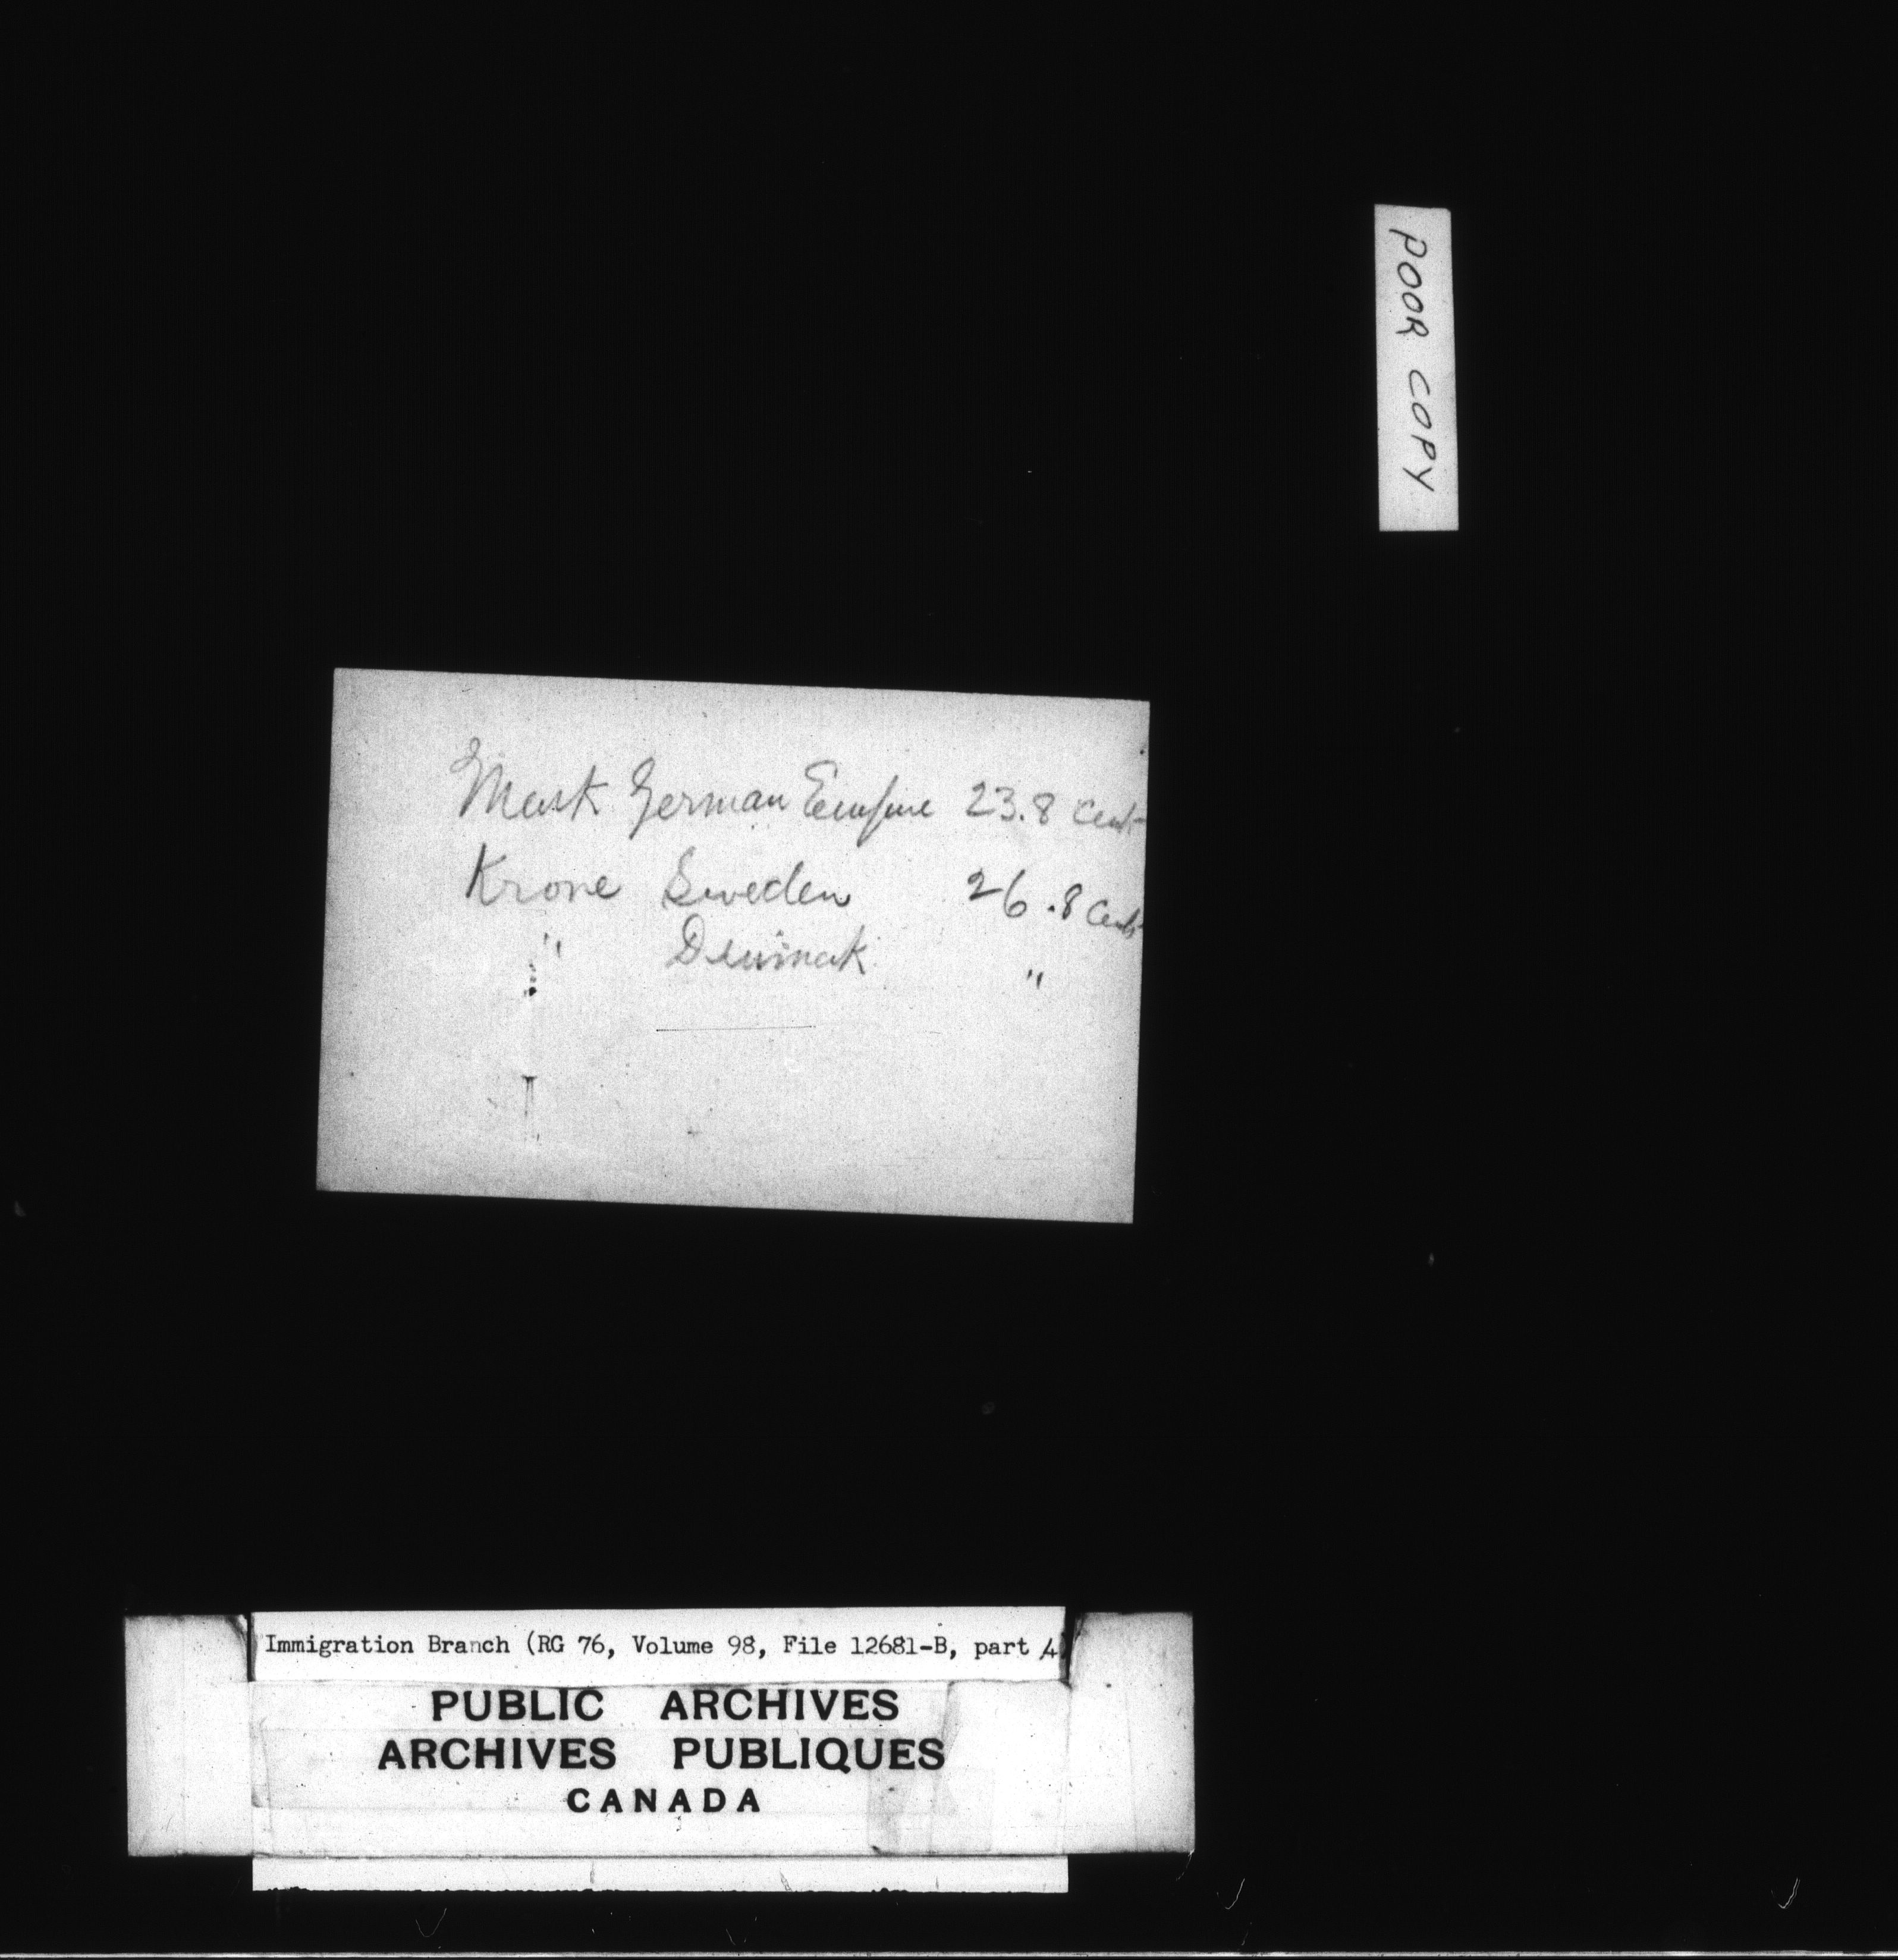 POOR COPY
Mark German Empire 23.8 Cents
Krone Sweden 26.8 Cents
" Denmark "
Immigration Branch (RG 76, Volume 98, File 12681-B, part 4)
PUBLIC ARCHIVES
ARCHIVES PUBLIQUES
CANADA